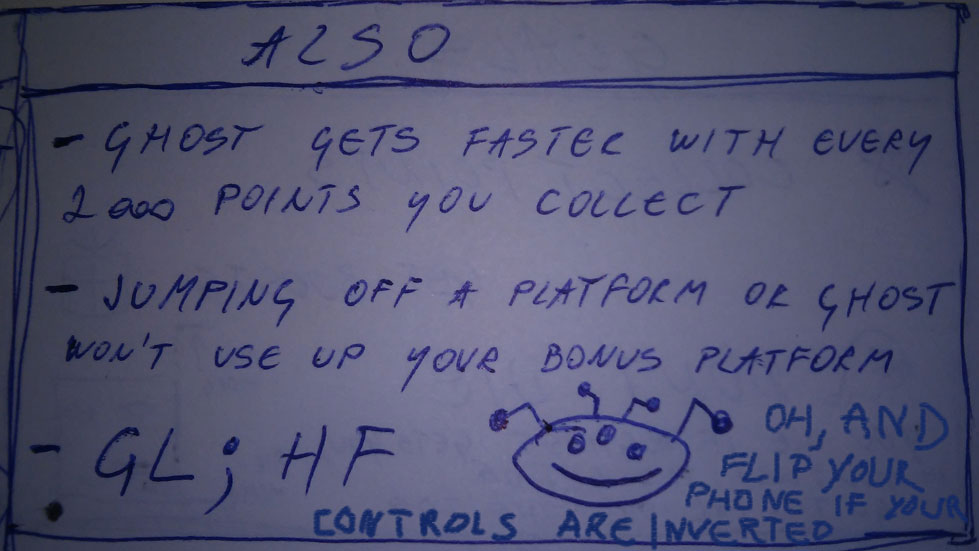 ALSO
- GHOST GETS FASTER WITH EVERY
2000 POINTS YOU COLLECT
- JUMPING OFF A PLATFORM OR GHOST
WON'T USE UP YOUR BONUS PLATFORM
- GL; HF
OH, AND
FLIP YOUR
PHONE IF YOUR
CONTROLS ARE INVERTED